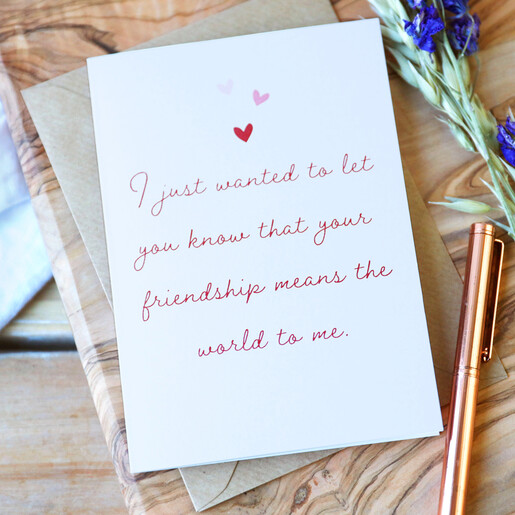 I just wanted to let
you know that your
friendship means the
world to me.